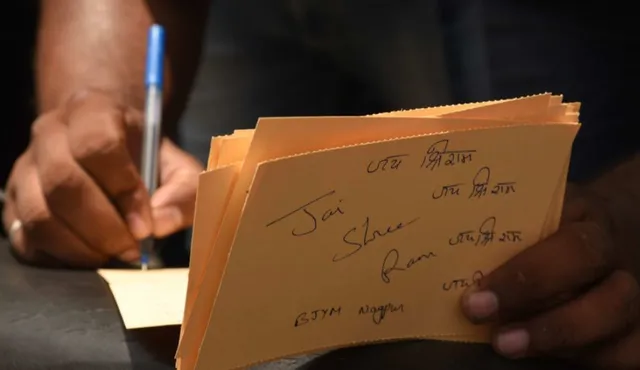 जय श्रीराम
जय श्रीराम
Jai
Shree
Ram जय श्रीराम
जय
BJYM Nagpur